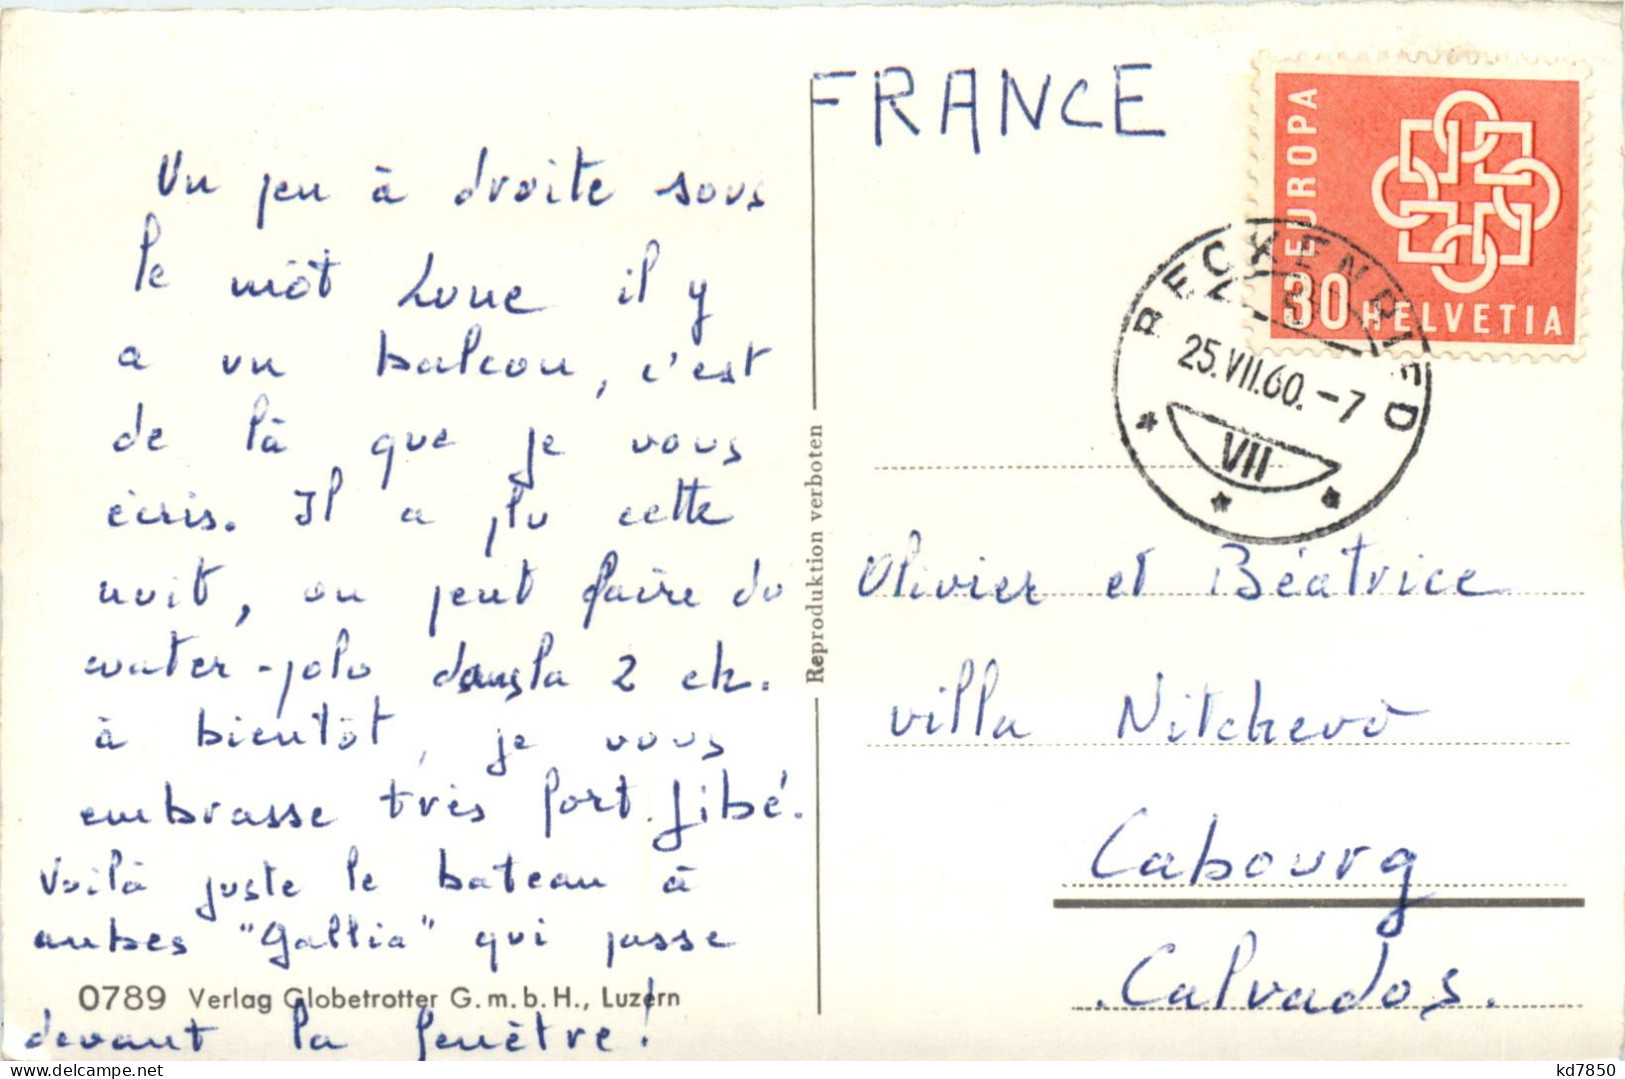 Un peu à droite sous
le môt Lune il y
a un balcon, c'est
de là que je vous
écris. Il a plu cette
nuit, on peut faire du
water-polo dans la 2 ch.
à bientôt, je vous
embrasse très fort. Jibé.
Voilà juste le bateau à
aubes "Gallia" qui passe
devant la fenêtre!
0789 Verlag Globetrotter G.m.b.H., Luzern
Reproduktion verboten
FRANCE
EUROPA
30 HELVETIA
BECKENRIED
25.VII.60.-7
VII
Olivier et Béatrice
villa Nitchevo
Cabourg
Calvados.
kd7850